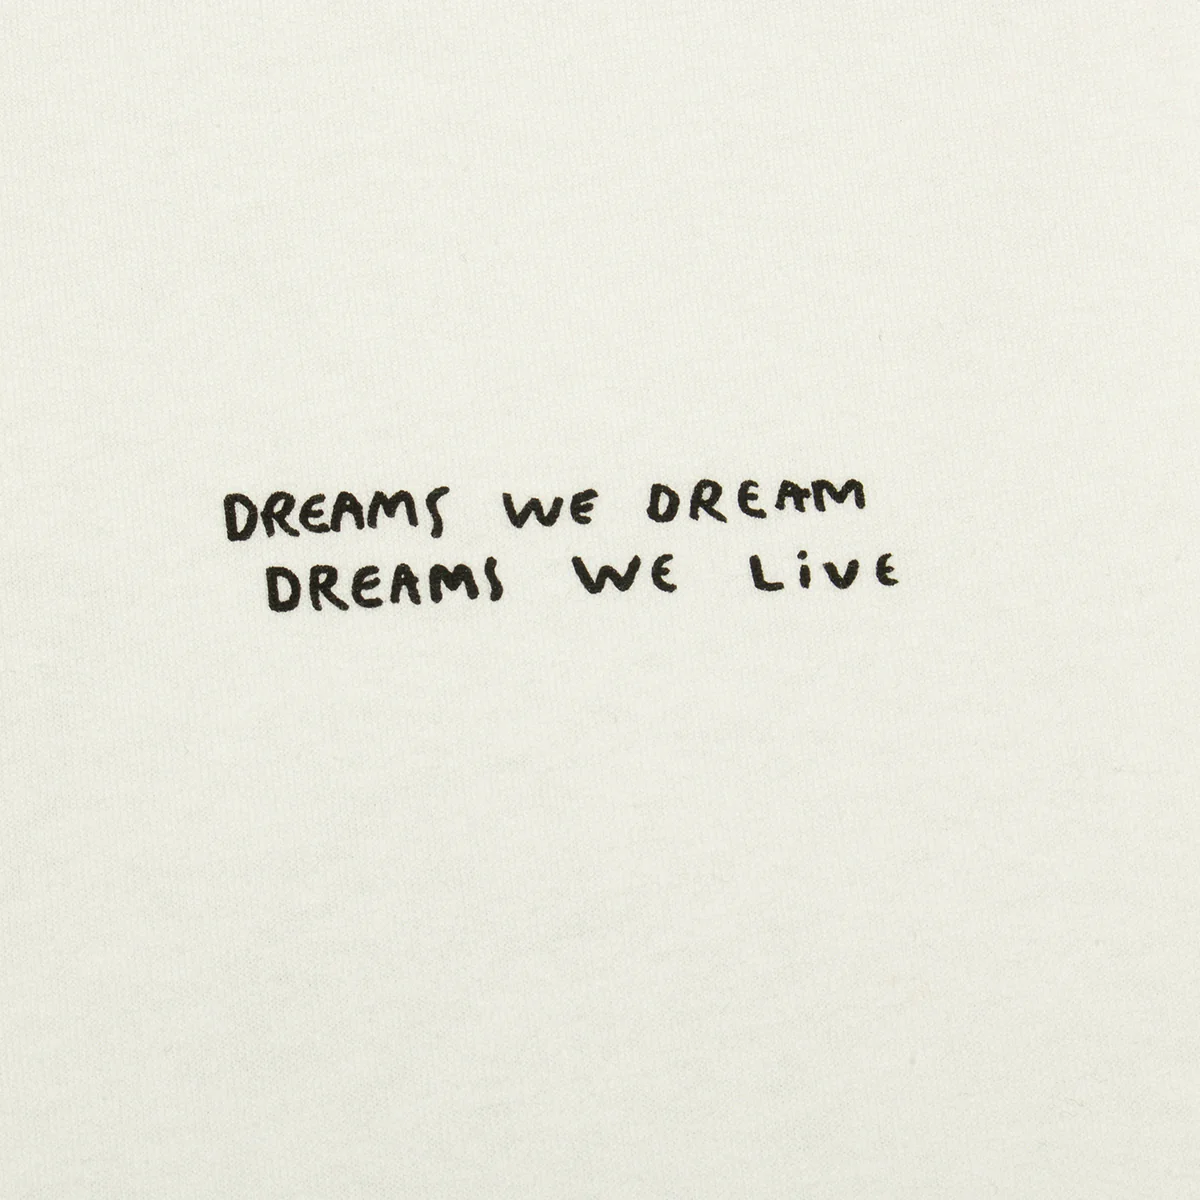 DREAMS WE DREAM
DREAMS WE LiVE